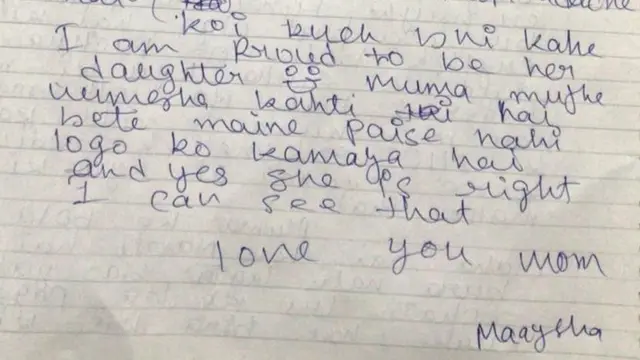 koi kuch bhi kahe
I am Proud to be her
daughter muma mujhe
humesha kahti hai
bete maine paise nahi
logo ko kamaya hai
and yes she is right
I can see that
love you mom
Maaysha